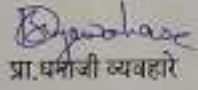 प्रा.धनाजी व्यवहारे